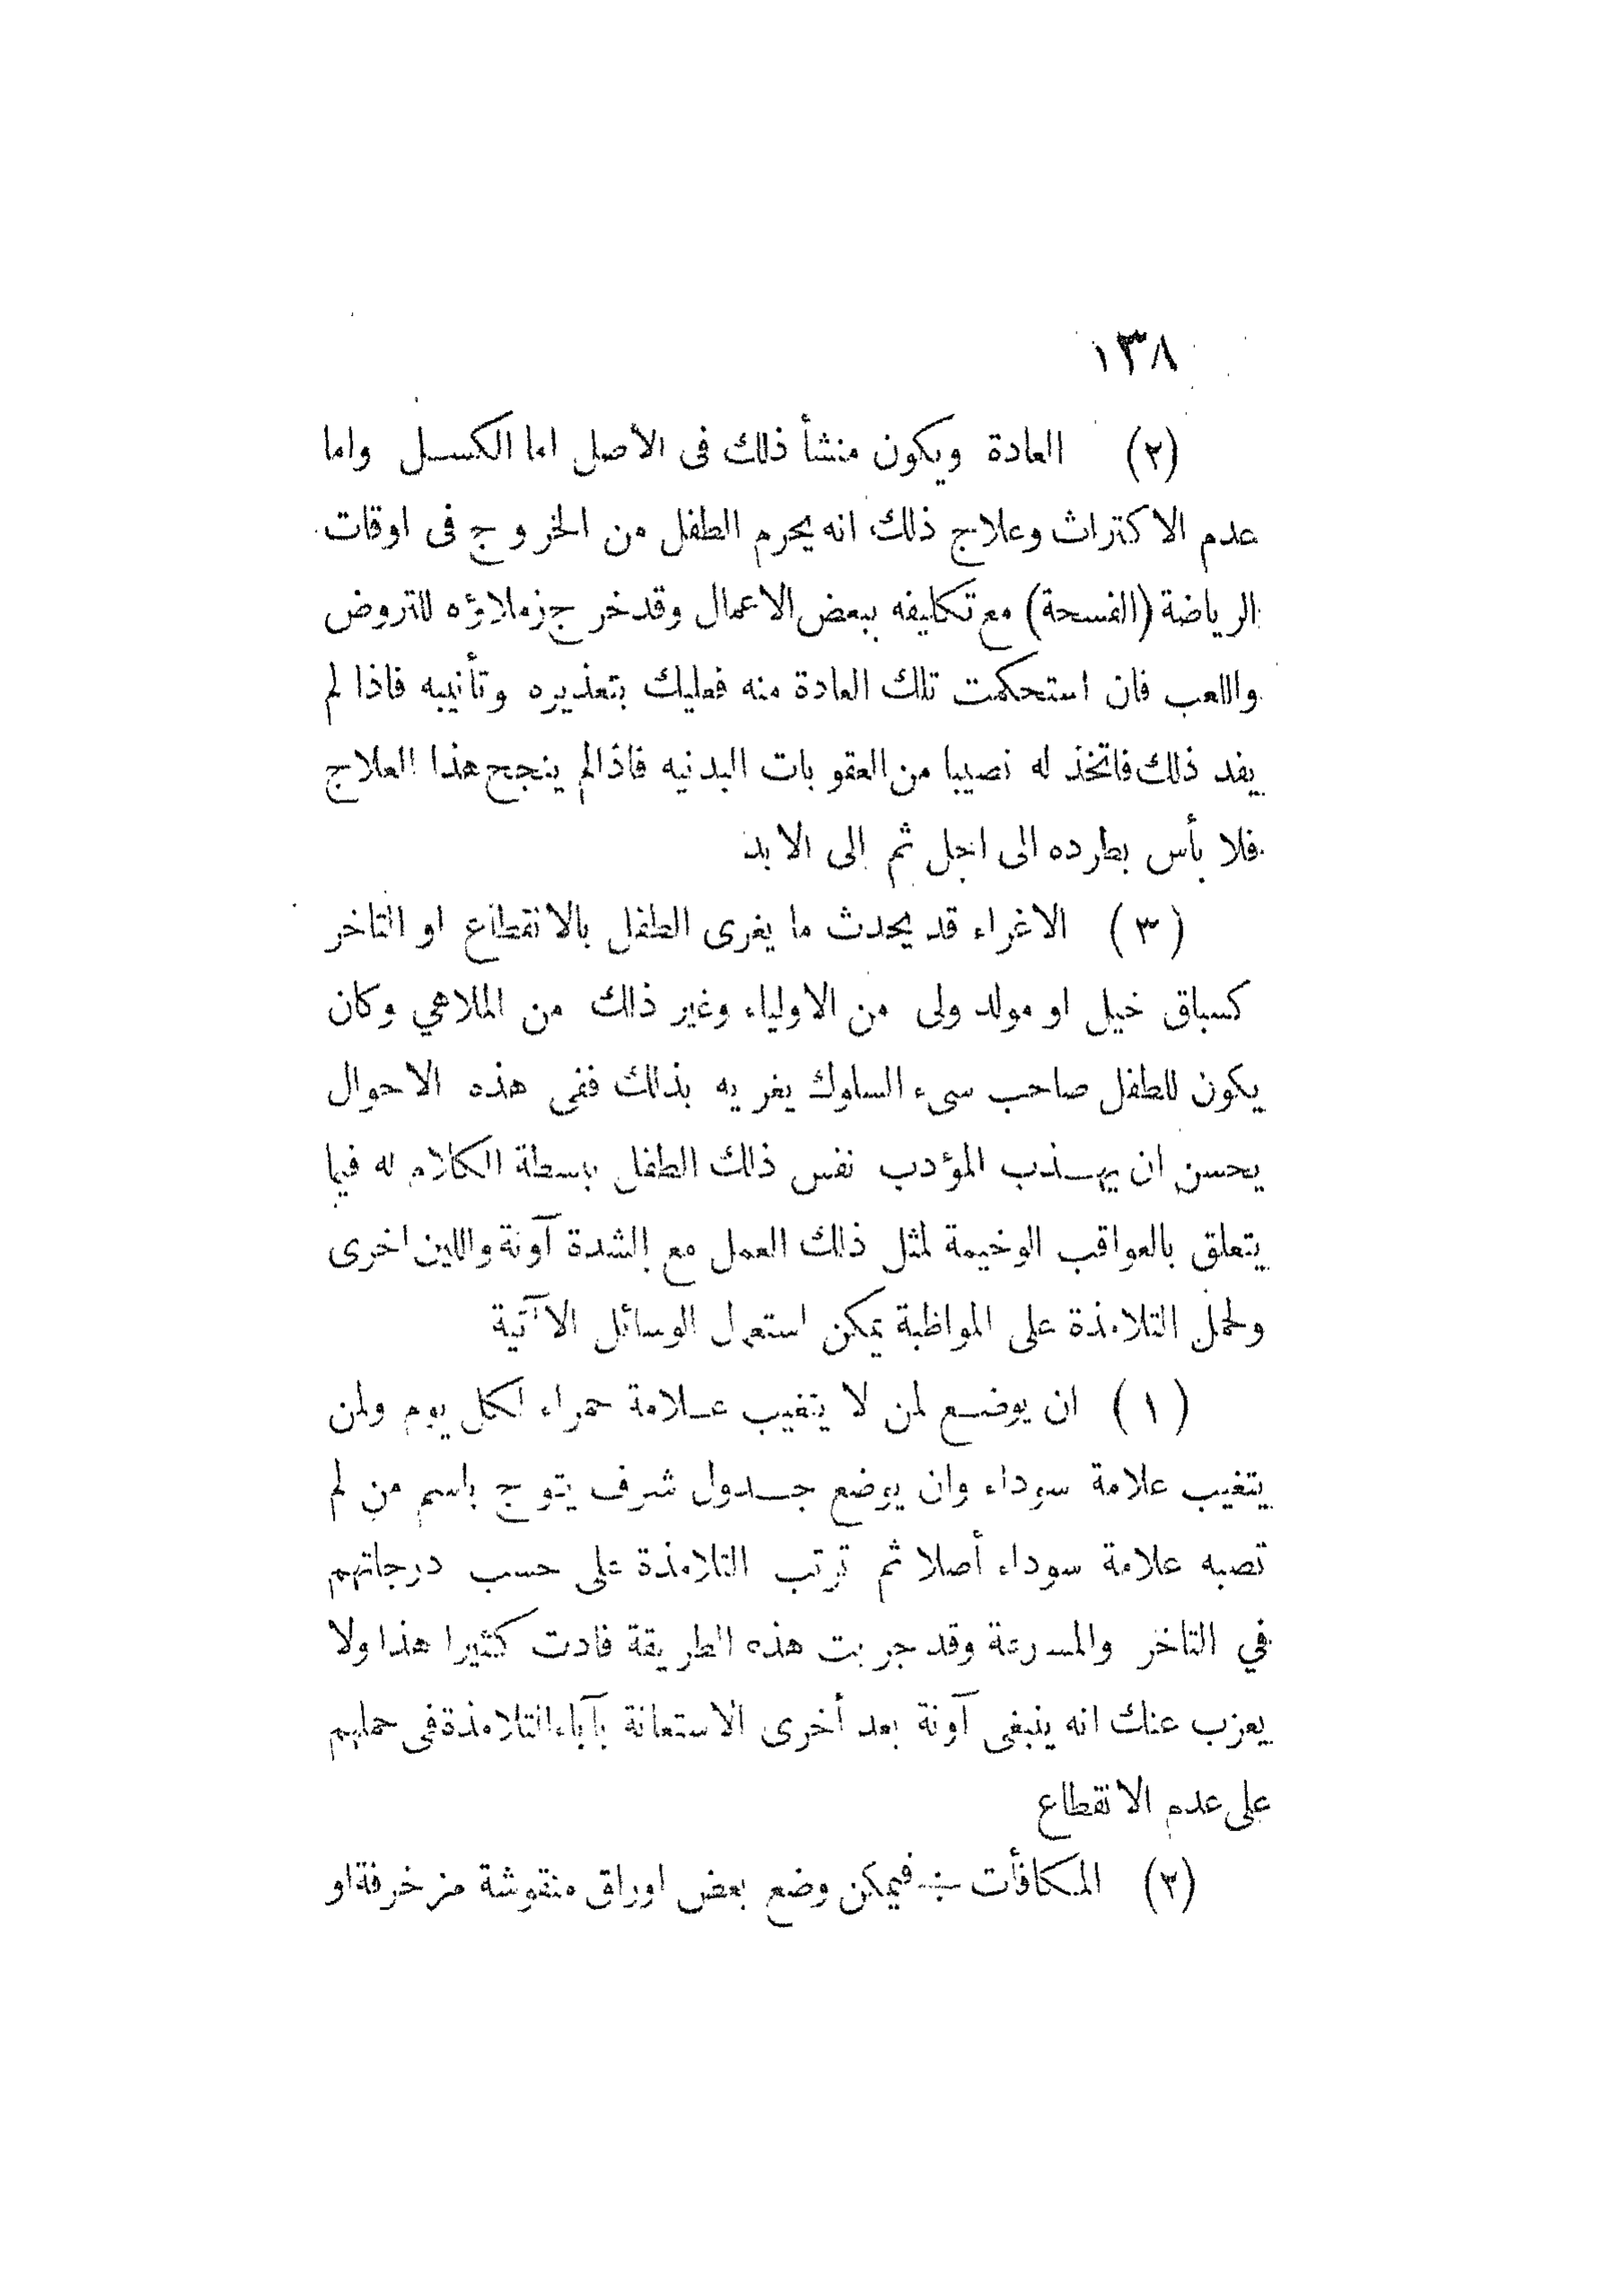 ١٣٨
(٢) العادة ويكون منشأ ذلك فى الأصل اما الكسل واما
عدم الاكتراث وعلاج ذلك انه يحرم الطفل من الخروج فى اوقات
الرياضة (الفسحة) مع تكليفه ببعض الاعمال وقد خرج زملاؤه للتروض
واللعب فان استحكمت تلك العادة منه فعليك بتعذيره وتأنيبه فاذا لم
يفد ذلك فاتخذ له نصيبا من العقوبات البدنيه فاذا لم ينجح هذا العلاج
فلا بأس بطرده الى اجل ثم الى الابد
(٣) الاغراء قد يحدث ما يغرى الطفل بالانقطاع او التاخر
كسباق خيل او مولد ولى من الاولياء وغير ذلك من الملاهي وكان
يكون للطفل صاحب سىء السلوك يغريه بذلك ففى هذه الاحوال
يحسن ان يهذب المؤدب نفس ذلك الطفل ببسطة الكلام له فيما
يتعلق بالعواقب الوخيمة لمثل ذلك العمل مع الشدة آونة واللين اخرى
ولحمل التلامذة على المواظبة يمكن استعمال الوسائل الآتية
(١) ان يوضع لمن لا يتغيب علامة حمراء لكل يوم ولمن
يتغيب علامة سوداء وان يوضع جدول شرف يتوج باسم من لم
تصبه علامة سوداء أصلا ثم ترتب التلامذة على حسب درجاتهم
في التاخر والمسرعة وقد جربت هذه الطريقة فادت كثيرا هذا ولا
يعزب عنك انه ينبغى آونة بعد أخرى الاستعانة بآباء التلامذة فى حملهم
على عدم الانقطاع
(٢) المكافأت :- فيمكن وضع بعض اوراق منقوشة مزخرفة او